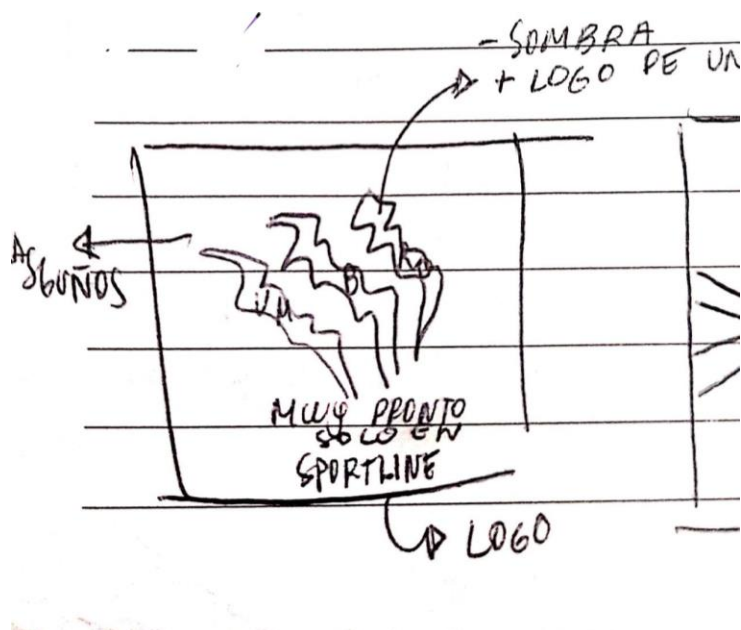 - SOMBRA
+ LOGO DE UN
MUY PRONTO
SOLO EN
SPORTLINE
LOGO